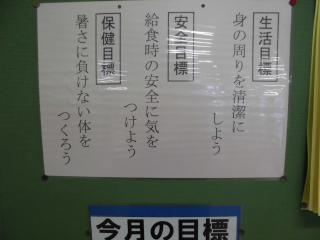 生活目標
身の周りを清潔に
しよう
安全目標
給食時の安全に気を
つけよう
保健目標
暑さに負けない体を
つくろう
今月の目標